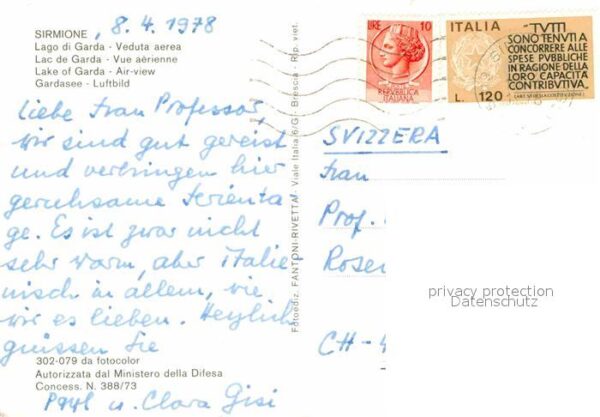 SIRMIONE , 8. 4. 1978
Lago di Garda - Veduta aerea
Lac de Garda - Vue aérienne
Lake of Garda - Air-view
Gardasee - Luftbild
Liebe Frau Professor,
wir sind gut gereist
und verbringen hier
geruhsame Ferienta
ge. Es ist zwar nicht
sehr warm, aber italie
nisch in allem, wie
wir es lieben. Herzlich
grüssen Sie
302-079 da fotocolor
Autorizzata dal Ministero della Difesa
Concess. N. 388/73
Paul u. Clara Gisi
Fotoediz. FANTONI-RIVETTA - Viale Italia 6/G - Brescia - Rip. viet.
LIRE 10
REPVBBLICA
ITALIANA
ITALIA
L. 120
TUTTI
SONO TENUTI A
CONCORRERE ALLE
SPESE PUBBLICHE
IN RAGIONE DELLA
LORO CAPACITÀ
CONTRIBUTIVA.
SVIZZERA
Frau
Prof.
Rosen
CH - 4
privacy protection
Datenschutz